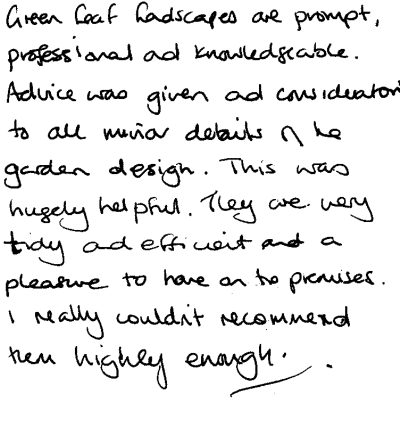 Green Leaf Ladscapes are prompt,
professional and knowledgeable.
Advice was given and consideration
to all minor details of the
garden design. This was
hugely helpful. They are very
tidy and efficient and a
pleasure to have on the premises.
I really couldn't recommend
them highly enough.